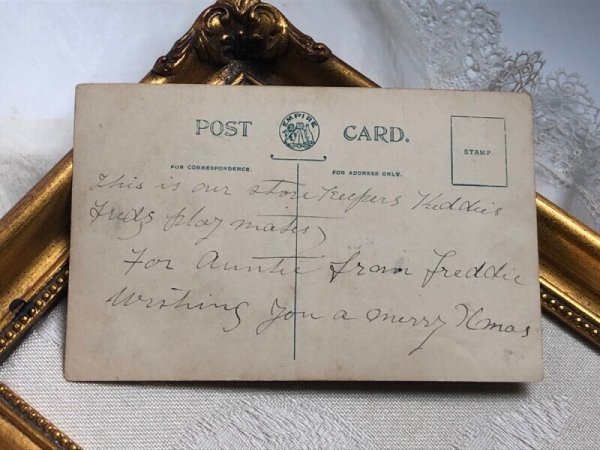 POST EMPIRE CARD.
STAMP.
FOR CORRESPONDENCE. FOR ADDRESS ONLY.
This is our store keepers Kiddies
Freds play mates
For Auntie from Freddie
Wishing you a merry Xmas